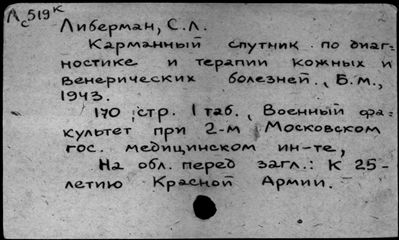 Л с519к
Либерман, С.Л.
Карманный спутник по диаг-
ностике и терапии кожных и
венерических болезней., Б.м.,
1943.
170 стр. 1 таб., Военный фа-
культет при 2-м Московском
гос. медицинском ин-те,
На обл. перед загл.: К 25-
летию Красной Армии.